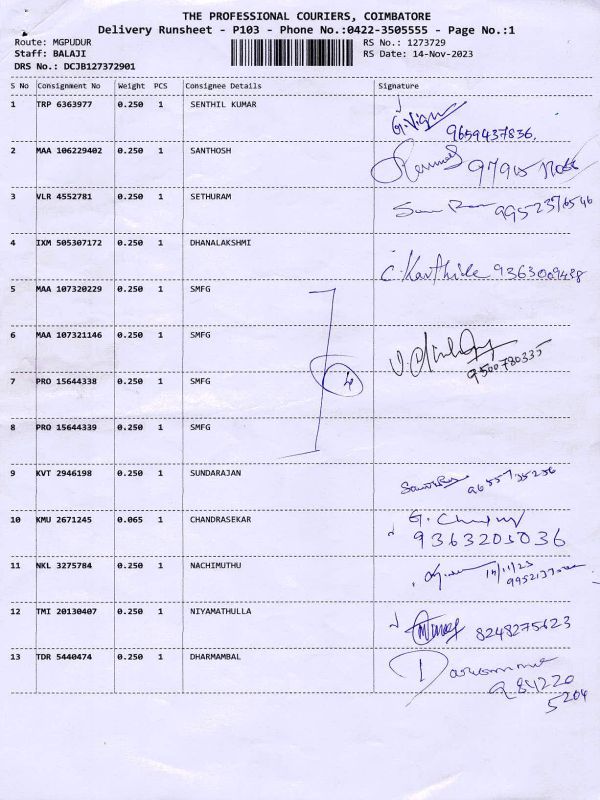 THE PROFESSIONAL COURIERS, COIMBATORE
Delivery Runsheet - P103 - Phone No.:0422-3505555 - Page No.:1
Route: MGPUDUR RS No.: 1273729
Staff: BALAJI RS Date: 14-Nov-2023
DRS No.: DCJB127372901
S No Consignment No Weight PCS Consignee Details Signature
1 TRP 6363977 0.250 1 SENTHIL KUMAR
9659437836.
2 MAA 106229402 0.250 1 SANTHOSH
3 VLR 4552781 0.250 1 SETHURAM
9952376546
4 IXM 505307172 0.250 1 DHANALAKSHMI
C. Karthik 9363009438
5 MAA 107320229 0.250 1 SMFG
6 MAA 107321146 0.250 1 SMFG
9500780335
7 PRO 15644338 0.250 1 SMFG
4
8 PRO 15644339 0.250 1 SMFG
9 KVT 2946198 0.250 1 SUNDARAJAN
9655735256
10 KMU 2671245 0.065 1 CHANDRASEKAR
9363203036
11 NKL 3275784 0.250 1 NACHIMUTHU
14/11/23
12 TMI 20130407 0.250 1 NIYAMATHULLA
8248275623
13 TDR 5440474 0.250 1 DHARMAMBAL
984220
5204